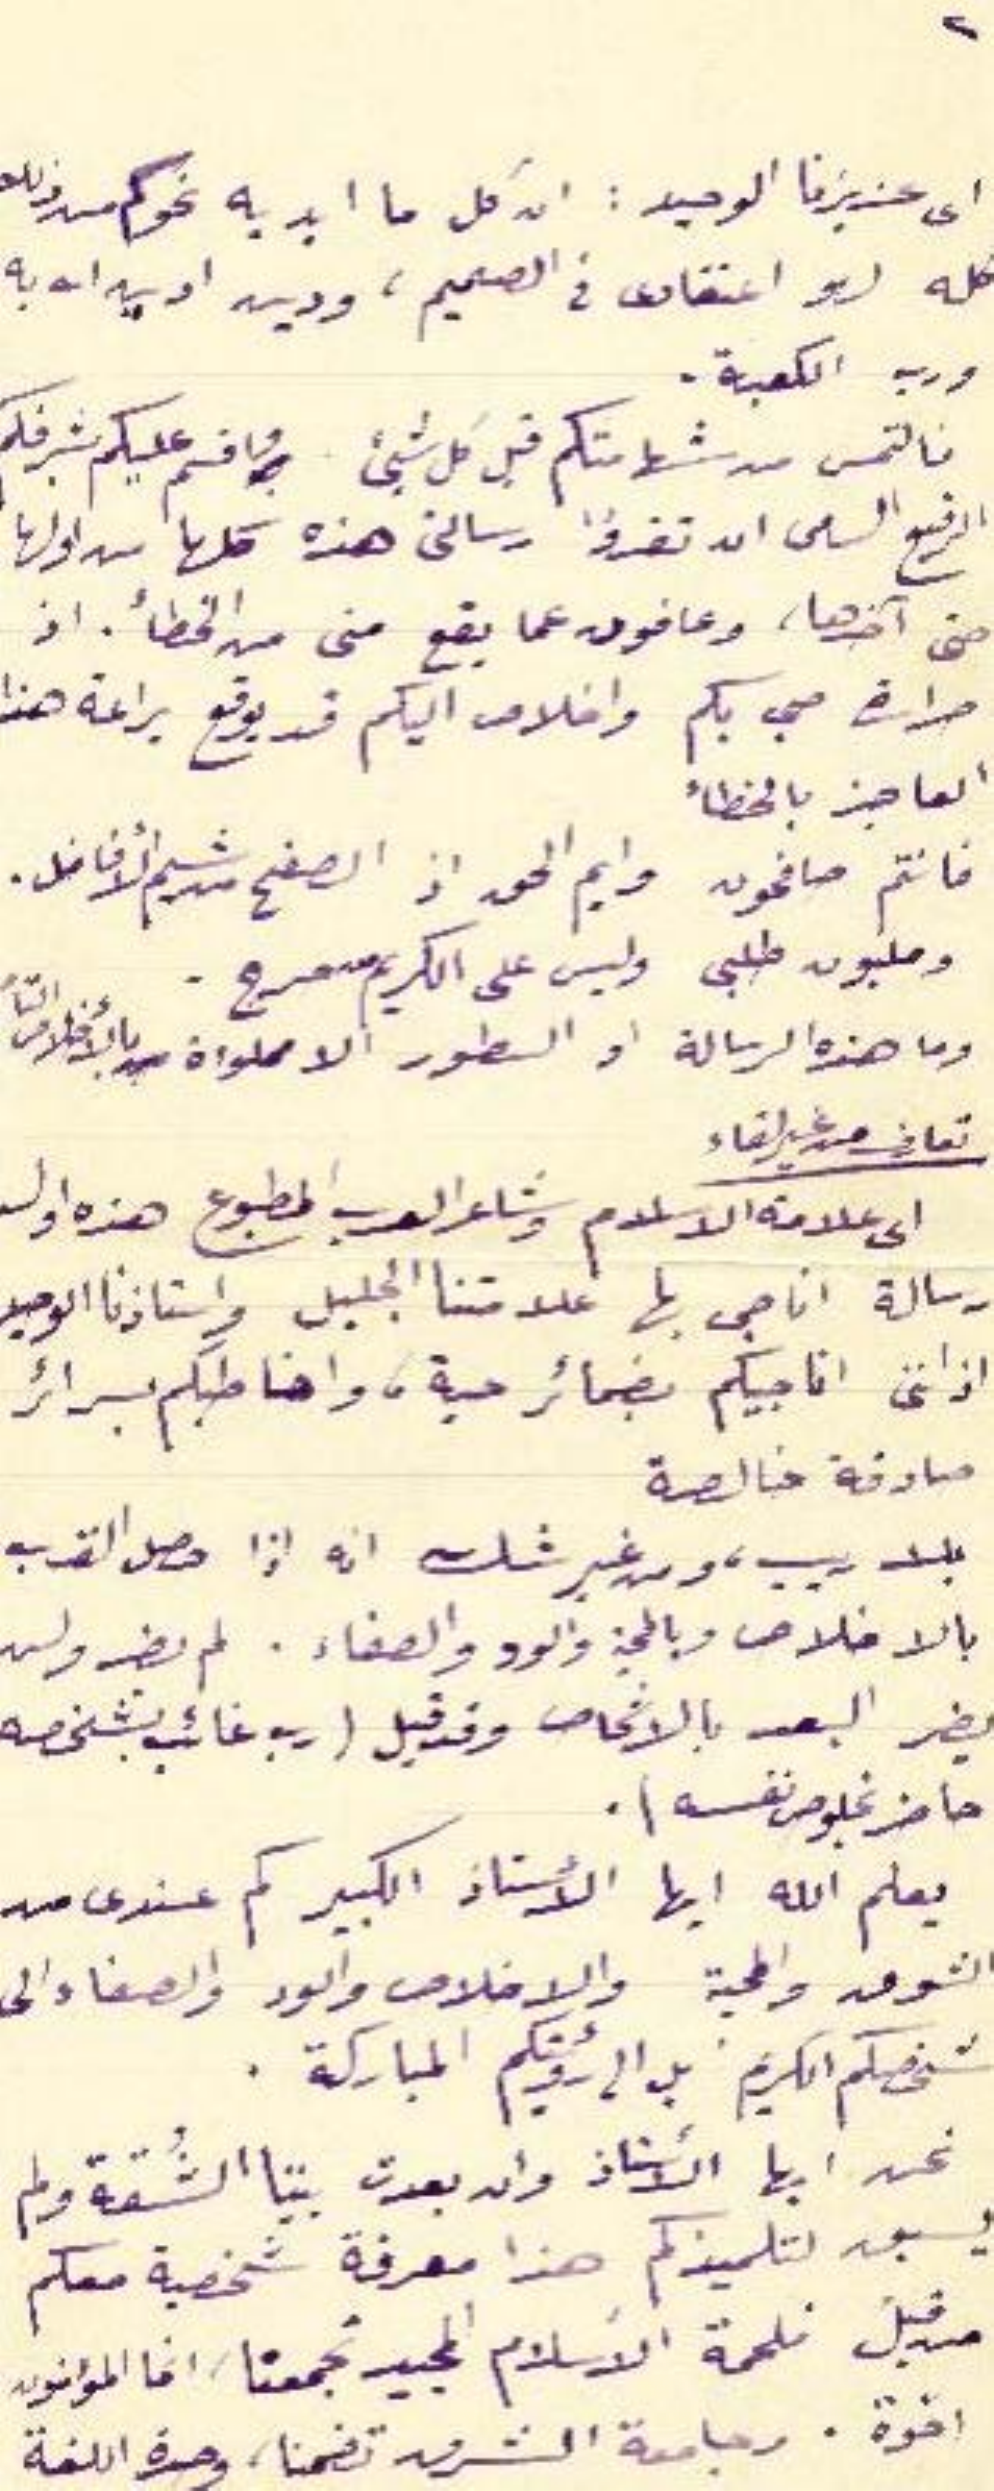 ٢
اى عزيزنا الوحيد : ان كل ما ابديه نحوكم من ذلك
كله لهو اعتقادى فى الصميم ، ودين ادين الله به
ورب الكعبة .
فالتمس من شهامتكم قبل كل شئ واقسم عليكم بشرفكم
الرفيع السامى ان تقرؤا رسالتى هذه كلها من اولها
حتى آخرها ، وعافون عما يقع منى من الخطأ . اذ
حرارة حبى بكم واخلاص اليكم قد يوقع يراعة هذا
العاجز بالخطاء
فانتم صافحون وايم الحق اذ الصفح من شيم الأفاضل .
وملبون طلبى وليس على الكريم من حرج .
وما هذه الرسالة او السطور الا مملواة بالأخلاص التا
تعارف من غير لقاء
اى علامة الاسلام وشاعر العرب المطبوع هذه اول
رسالة اناجى بها علامتنا الجليل واستاذنا الوحيد
اذ اننى اناجيكم بضمائر حية ، واخاطبكم بسرائر
صادقة خالصة
بلا ريب ، ومن غير شك انه اذا حصل القرب
بالاخلاص وبالمحبة والود والصفاء . لم يضر ولن
يضر البعد بالاشخاص وقد قيل ( رب غائب بشخصه
حاضر بخلوص نفسه ) .
يعلم الله ايها الأستاذ الكبير كم عندى من
الشوق والمحبة والاخلاص والود والصفاء الى
شخصكم الكريم بل الى رؤيتكم المباركة .
نحن ايها الأستاذ وان بعدت بيننا الشُقة ولم
يسبق لتلميذكم هذا معرفة شخصية معكم
من قبل فلحمة الاسلام المجيد تجمعنا ، انما المؤمنون
اخوة . وجامعة الشرق تضمنا ، وحدة اللغة